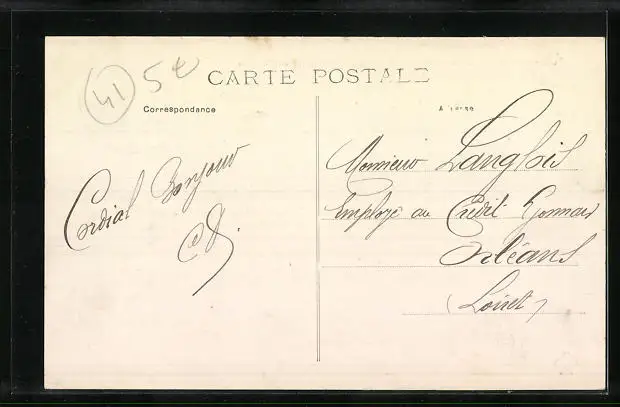 41 5€
CARTE POSTALE
Correspondance
Adresse
Cordial Bonjour
Monsieur Langlois
Employé au Crédit Lyonnais
Orléans
(Loiret)